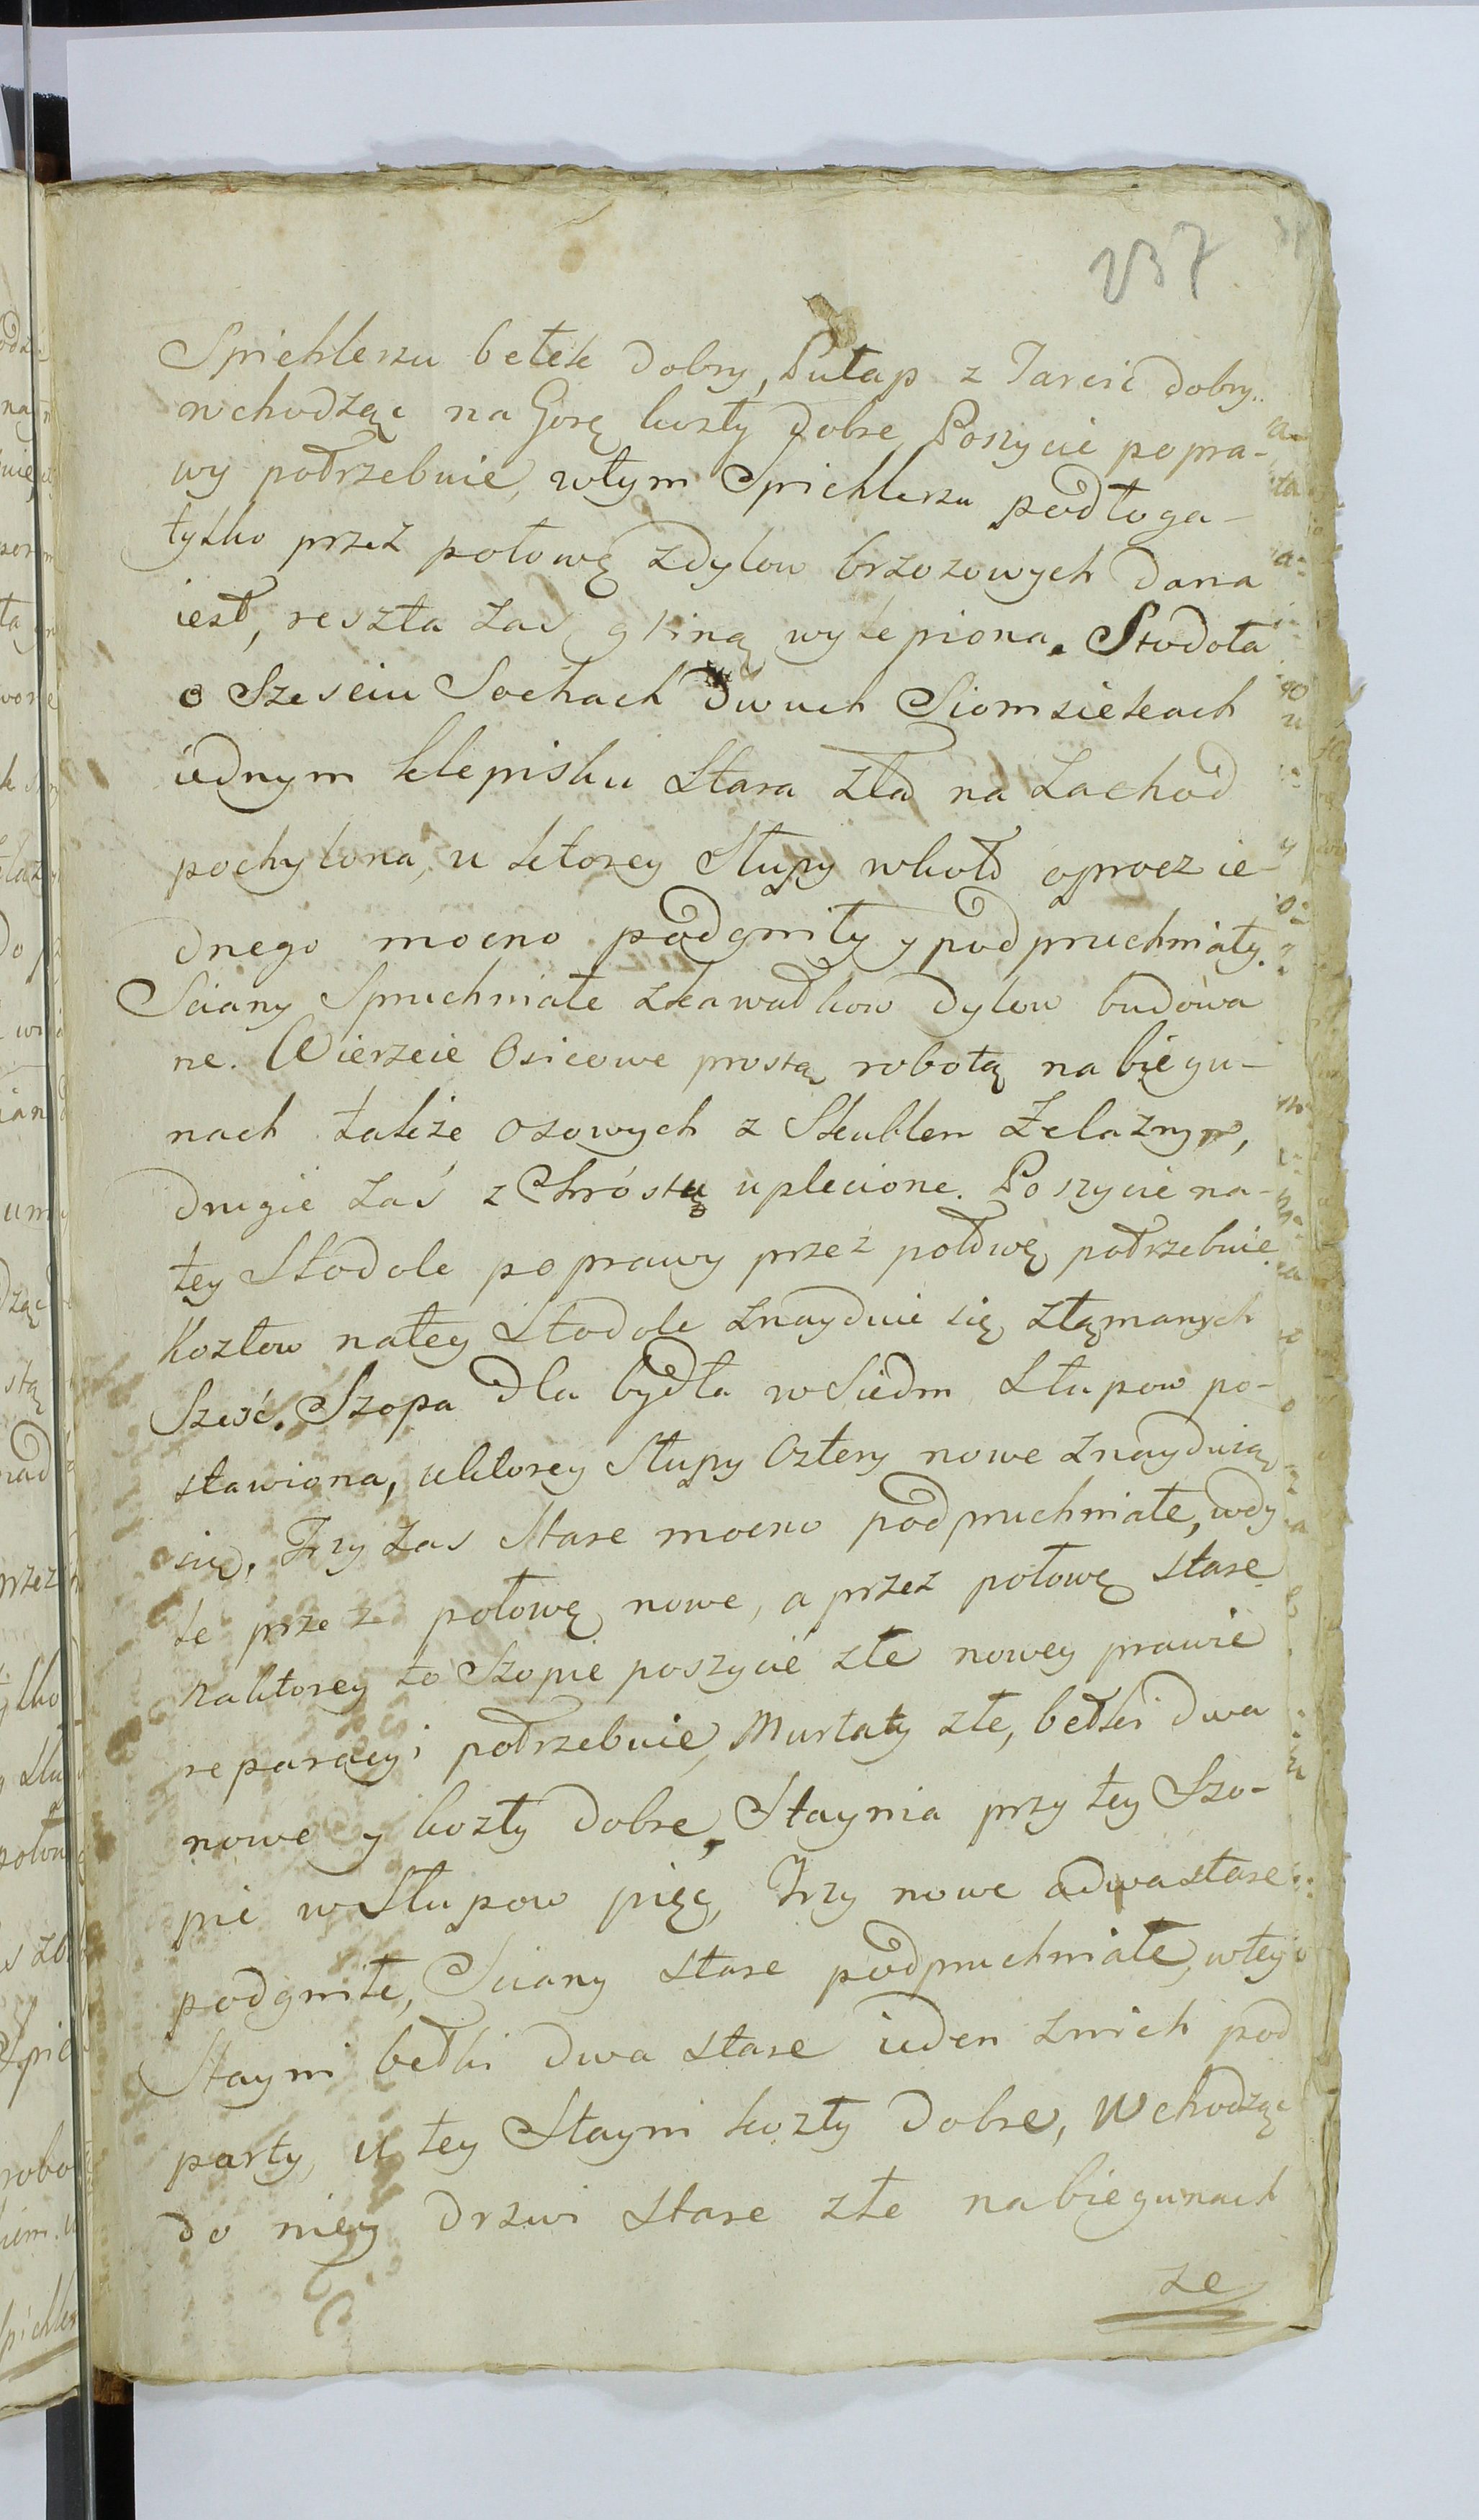 237
Spichlerzu belek dobry, Pułap z Tarcic dobry..
wchodząc na Gorę kozły dobre, Poszycie popra-
wy potrzebuie, wtym Spichlerzu podłoga-
tylko przez połowę zdylow brzozowych dana
iest, reszta zas gliną wylepiona. Stodoła
o Szesciu Sochach dwuch Siomsiekach
iednym klepisku Stara zła na Zachod
pochylona, u ktorey Słupy wkoło oprocz ie-
dnego mocno podgniły y podpruchniały.
Sciany Spruchniałe zkawałkow dylow budowa
ne. Wierzeie Osicowe prostą robotą na biegu-
nach także osowych z Skublem Żelaznym,
drugie zaś z Chróstu uplecione. Poszycie na-
tey Stodole poprawy przez połowę potrzebuie
Kozłow natey Stodole znayduie się złamanych
Szesć. Szopa dla bydła wSiedm Słupow po-
stawiona, uktorey Słupy Cztery nowe znayduią
się, Trzy zas Stare mocno podpruchniałe, wdy
le przez połowę nowe, a przez połowę stare
naktorey to Szopie poszycie złe nowey prawie
reparacyi potrzebuie, Murłaty złe, belki dwa
nowe y kozły dobre, Staynia przy tey Szo-
pie wSłupow pięc, Trzy nowe adwastare
podgniłe, Sciany stare podpruchniałe, wtey
Stayni belki dwa stare ieden znich pod
party, u tey Stayni kozły dobre, Wchodząc
do niey drzwi stare złe nabiegunach
ze